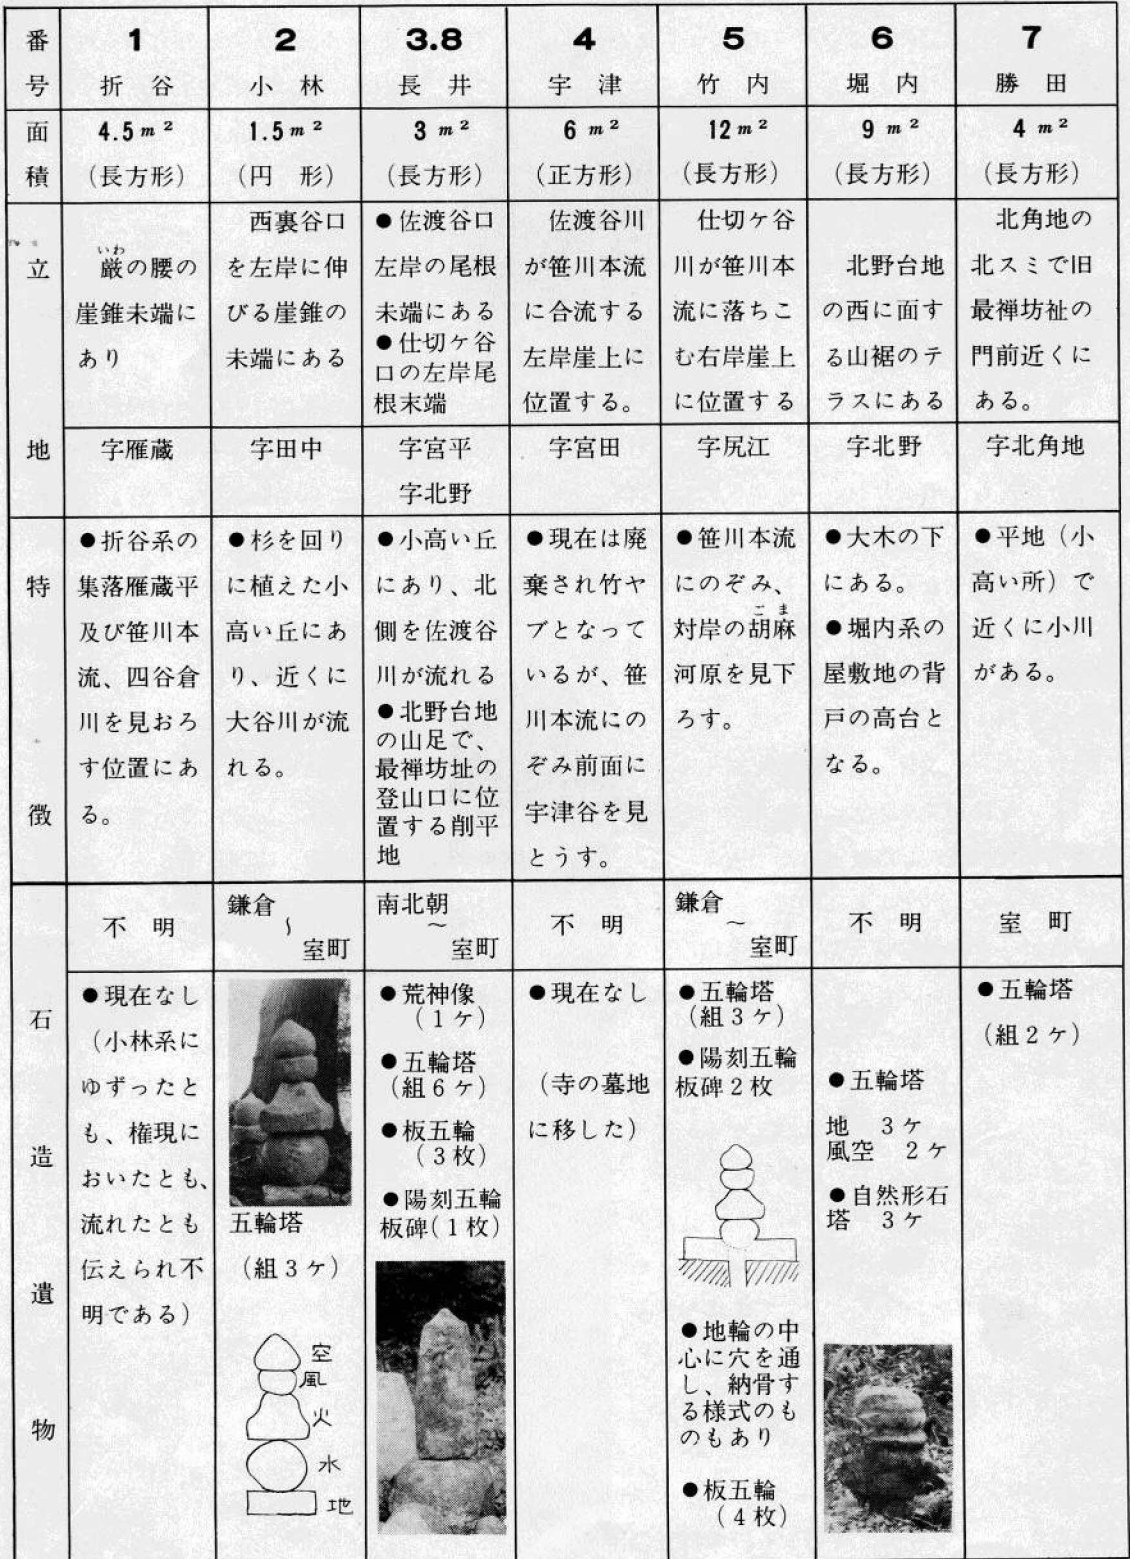 番号
1
折谷
2
小林
3.8
長井
4
宇津
5
竹内
6
堀内
7
勝田
面積
4.5m²
(長方形)
1.5m²
(円形)
3m²
(長方形)
6m²
(正方形)
12m²
(長方形)
9m²
(長方形)
4m²
(長方形)
立地
いわ
巌の腰の
崖錐未端に
あり
西裏谷口
を左岸に伸
びる崖錐の
未端にある
●佐渡谷口
左岸の尾根
未端にある
●仕切ケ谷
口の左岸尾
根末端
佐渡谷川
が笹川本流
に合流する
左岸崖上に
位置する。
仕切ケ谷
川が笹川本
流に落ちこ
む右岸崖上
に位置する
北野台地
の西に面す
る山裾のテ
ラスにある
北角地の
北スミで旧
最禅坊祉の
門前近くに
ある。
字雁蔵
字田中
字宮平
字北野
字宮田
字尻江
字北野
字北角地
特徴
●折谷系の
集落雁蔵平
及び笹川本
流、四谷倉
川を見おろ
す位置にあ
る。
●杉を回り
に植えた小
高い丘にあ
り、近くに
大谷川が流
れる。
●小高い丘
にあり、北
側を佐渡谷
川が流れる
●北野台地
の山足で、
最禅坊址の
登山口に位
置する削平
地
●現在は廃
棄され竹ヤ
ブとなって
いるが、笹
川本流にの
ぞみ前面に
宇津谷を見
とうす。
●笹川本流
にのぞみ、
ごま
対岸の胡麻
河原を見下
ろす。
●大木の下
にある。
●堀内系の
屋敷地の背
戸の高台と
なる。
●平地(小
高い所)で
近くに小川
がある。
石造遺物
不明
鎌倉
〜
室町
南北朝
〜
室町
不明
鎌倉
〜
室町
不明
室町
●現在なし
(小林系に
ゆずったと
も、権現に
おいたとも、
流れたとも
伝えられ不
明である)
五輪塔
(組3ケ)
空
風
火
水
地
●荒神像
(1ケ)
●五輪塔
(組6ケ)
●板五輪
(3枚)
●陽刻五輪
板碑(1枚)
●現在なし
(寺の墓地
に移した)
●五輪塔
(組3ケ)
●陽刻五輪
板碑2枚
●地輪の中
心に穴を通
し、納骨す
る様式のも
のもあり
●板五輪
(4枚)
●五輪塔
地 3ケ
風空 2ケ
●自然形石
塔 3ケ
●五輪塔
(組2ケ)